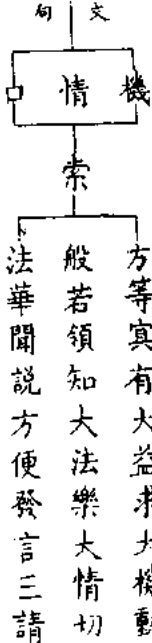 文句
機
情
口
索
方等冥有大益求大機動
般若領知大法樂大情切
法華聞說方便發言三請